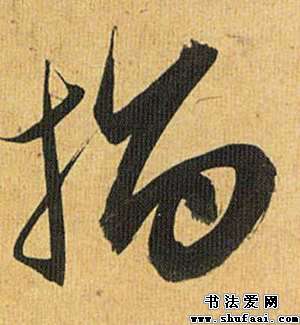 指
书法爱网
www.shufaai.com